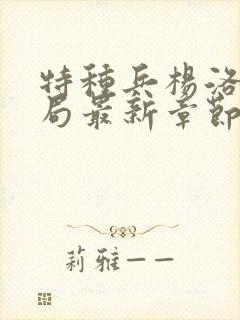 特種兵楊洛
局最新章節
莉雅——